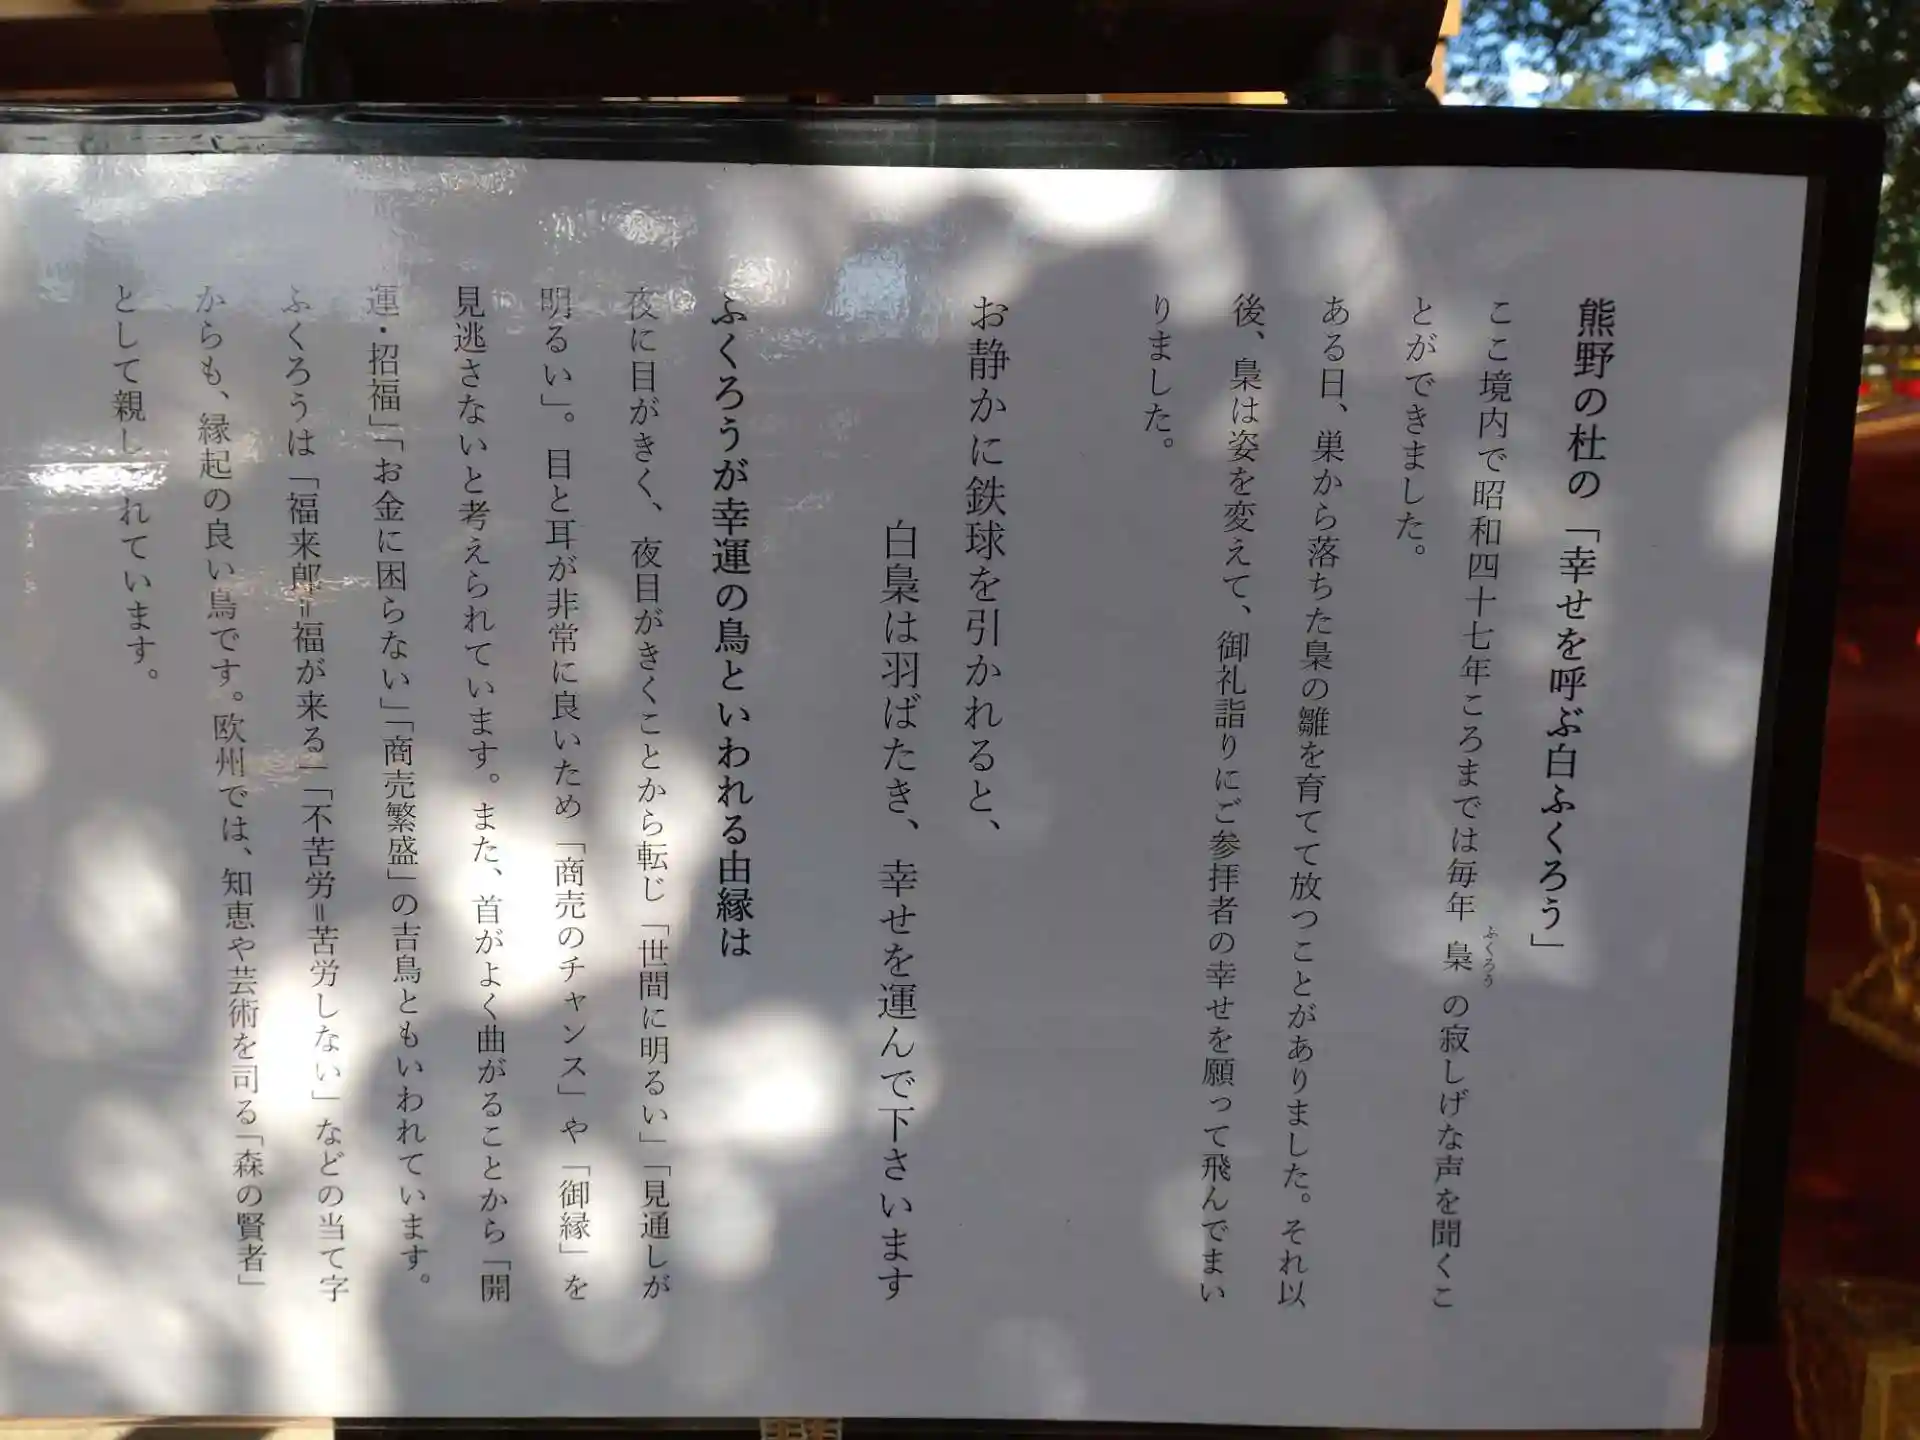 熊野の杜の「幸せを呼ぶ白ふくろう」
ここ境内で昭和四十七年ころまでは毎年梟の寂しげな声を聞くこ
ふくろう
とができました。
ある日、巣から落ちた梟の雛を育てて放つことがありました。それ以
後、梟は姿を変えて、御礼詣りにご参拝者の幸せを願って飛んでまい
りました。
お静かに鉄球を引かれると、
白梟は羽ばたき、幸せを運んで下さいます
ふくろうが幸運の鳥といわれる由縁は
夜に目がきく、夜目がきくことから転じ「世間に明るい」「見通しが
明るい」。目と耳が非常に良いため「商売のチャンス」や「御縁」を
見逃さないと考えられています。また、首がよく曲がることから「開
運・招福」「お金に困らない」「商売繁盛」の吉鳥ともいわれています。
ふくろうは「福来郎=福が来る」「不苦労=苦労しない」などの当て字
からも、縁起の良い鳥です。欧州では、知恵や芸術を司る「森の賢者」
として親し れています。